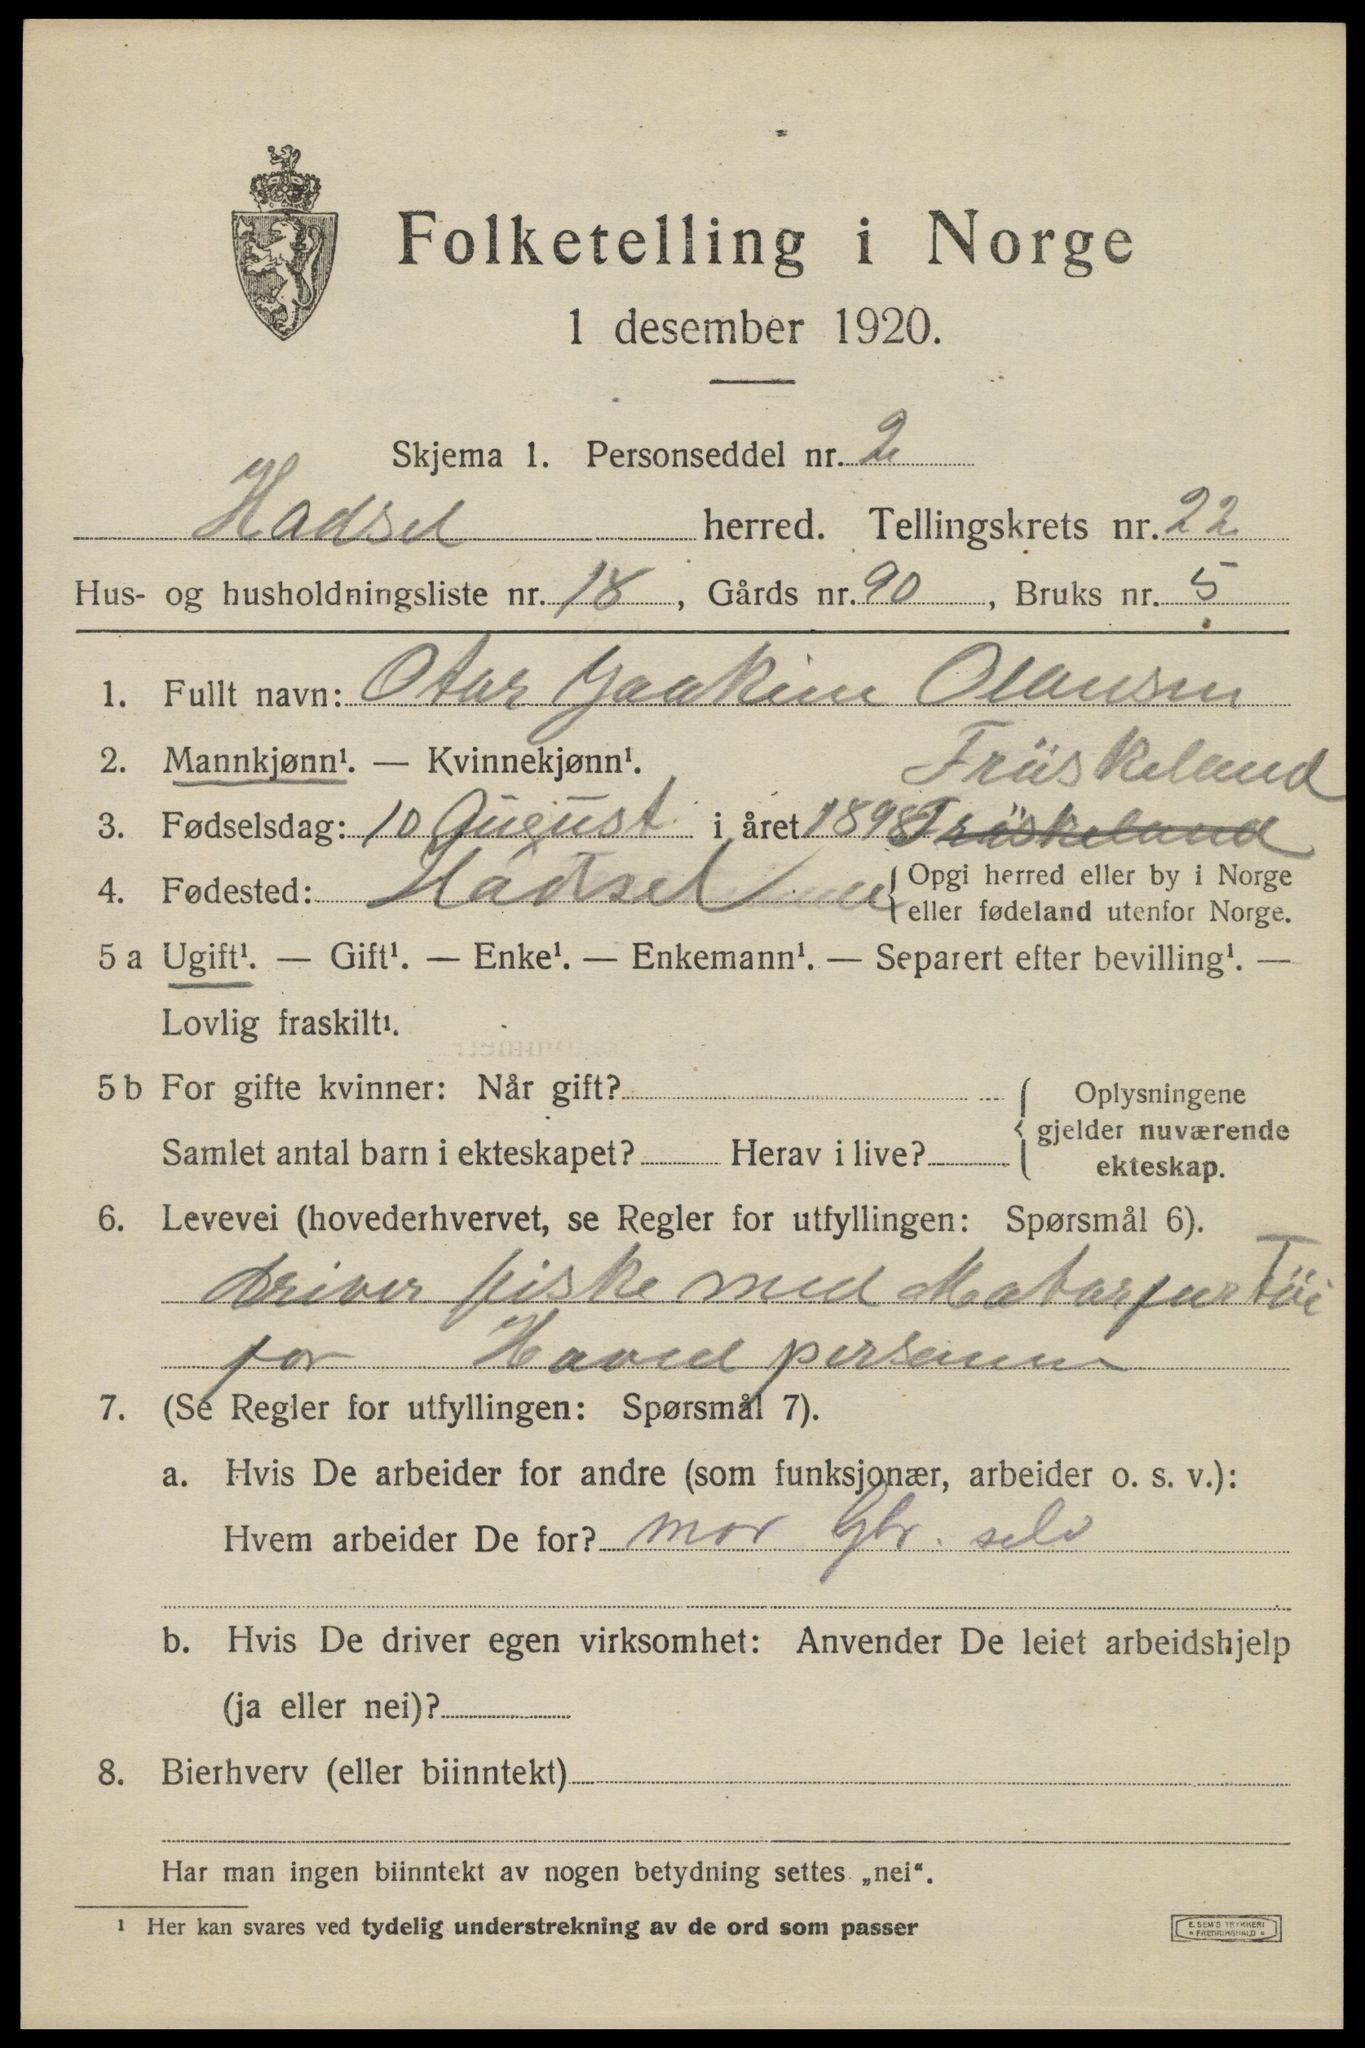 Folketelling i Norge
1 desember 1920.
Skjema 1. Personseddel nr. 2
Hadsel herred. Tellingskrets nr. 22
Hus- og husholdningsliste nr. 18, Gårds nr. 90, Bruks nr. 5
1. Fullt navn: Otar Joakim Olausen
2. Mannkjønn¹. — Kvinnekjønn¹. Früskeland
3. Fødselsdag: 10 August i året 1898 Früskeland
4. Fødested: Hadsel { Opgi herred eller by i Norge
eller fødeland utenfor Norge.
5 a Ugift¹. — Gift¹. — Enke¹. — Enkemann¹. — Separert efter bevilling¹. —
Lovlig fraskilt¹.
5 b For gifte kvinner: Når gift? { Oplysningene
gjelder nuværende
Samlet antal barn i ekteskapet? Herav i live?
ekteskap.
6. Levevei (hovederhvervet, se Regler for utfyllingen: Spørsmål 6).
driver fiske med Matarfurtöi
for Haved persenen
7. (Se Regler for utfyllingen: Spørsmål 7).
a. Hvis De arbeider for andre (som funksjonær, arbeider o. s. v.):
Hvem arbeider De for? mor Gbr. selv
b. Hvis De driver egen virksomhet: Anvender De leiet arbeidshjelp
(ja eller nei)?
8. Bierhverv (eller biinntekt)
Har man ingen biinntekt av nogen betydning settes „nei“.
¹ Her kan svares ved tydelig understrekning av de ord som passer
E. SEM'S TRYKKERI
* FREDRIKSHALD *